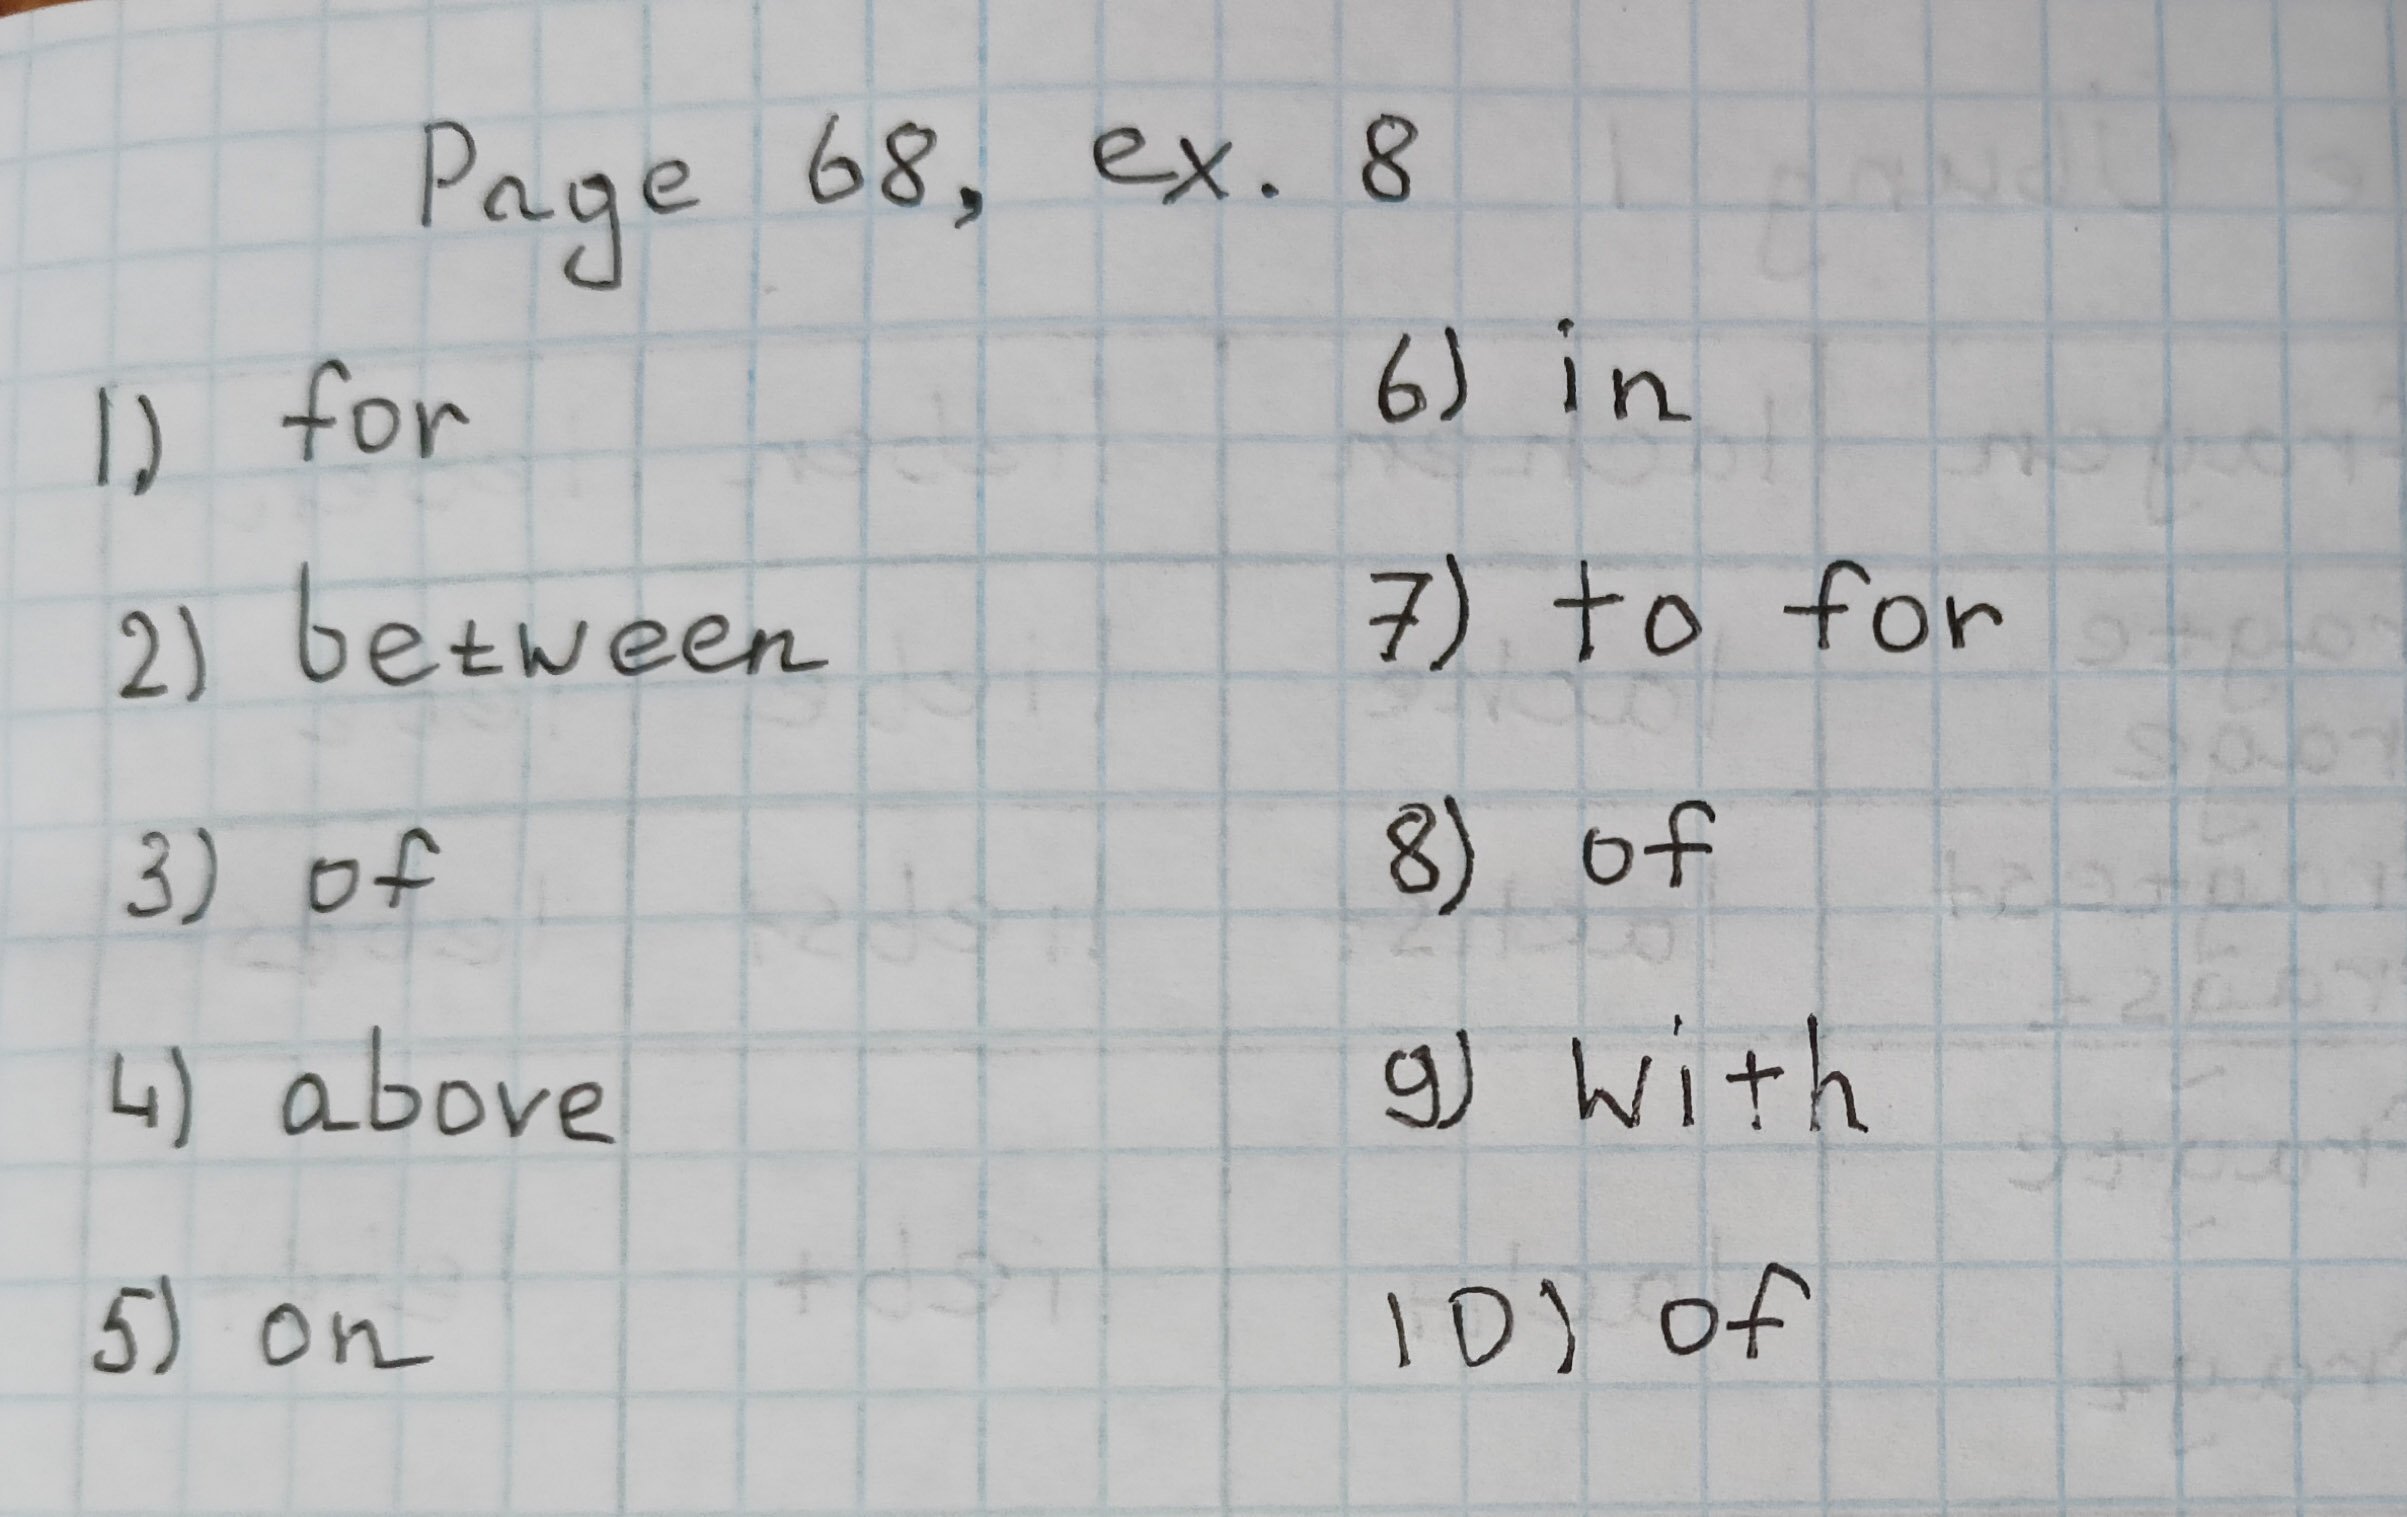 Page 68, ex. 8
1) for
2) between
3) of
4) above
5) on
6) in
7) to for
8) of
9) with
10) of